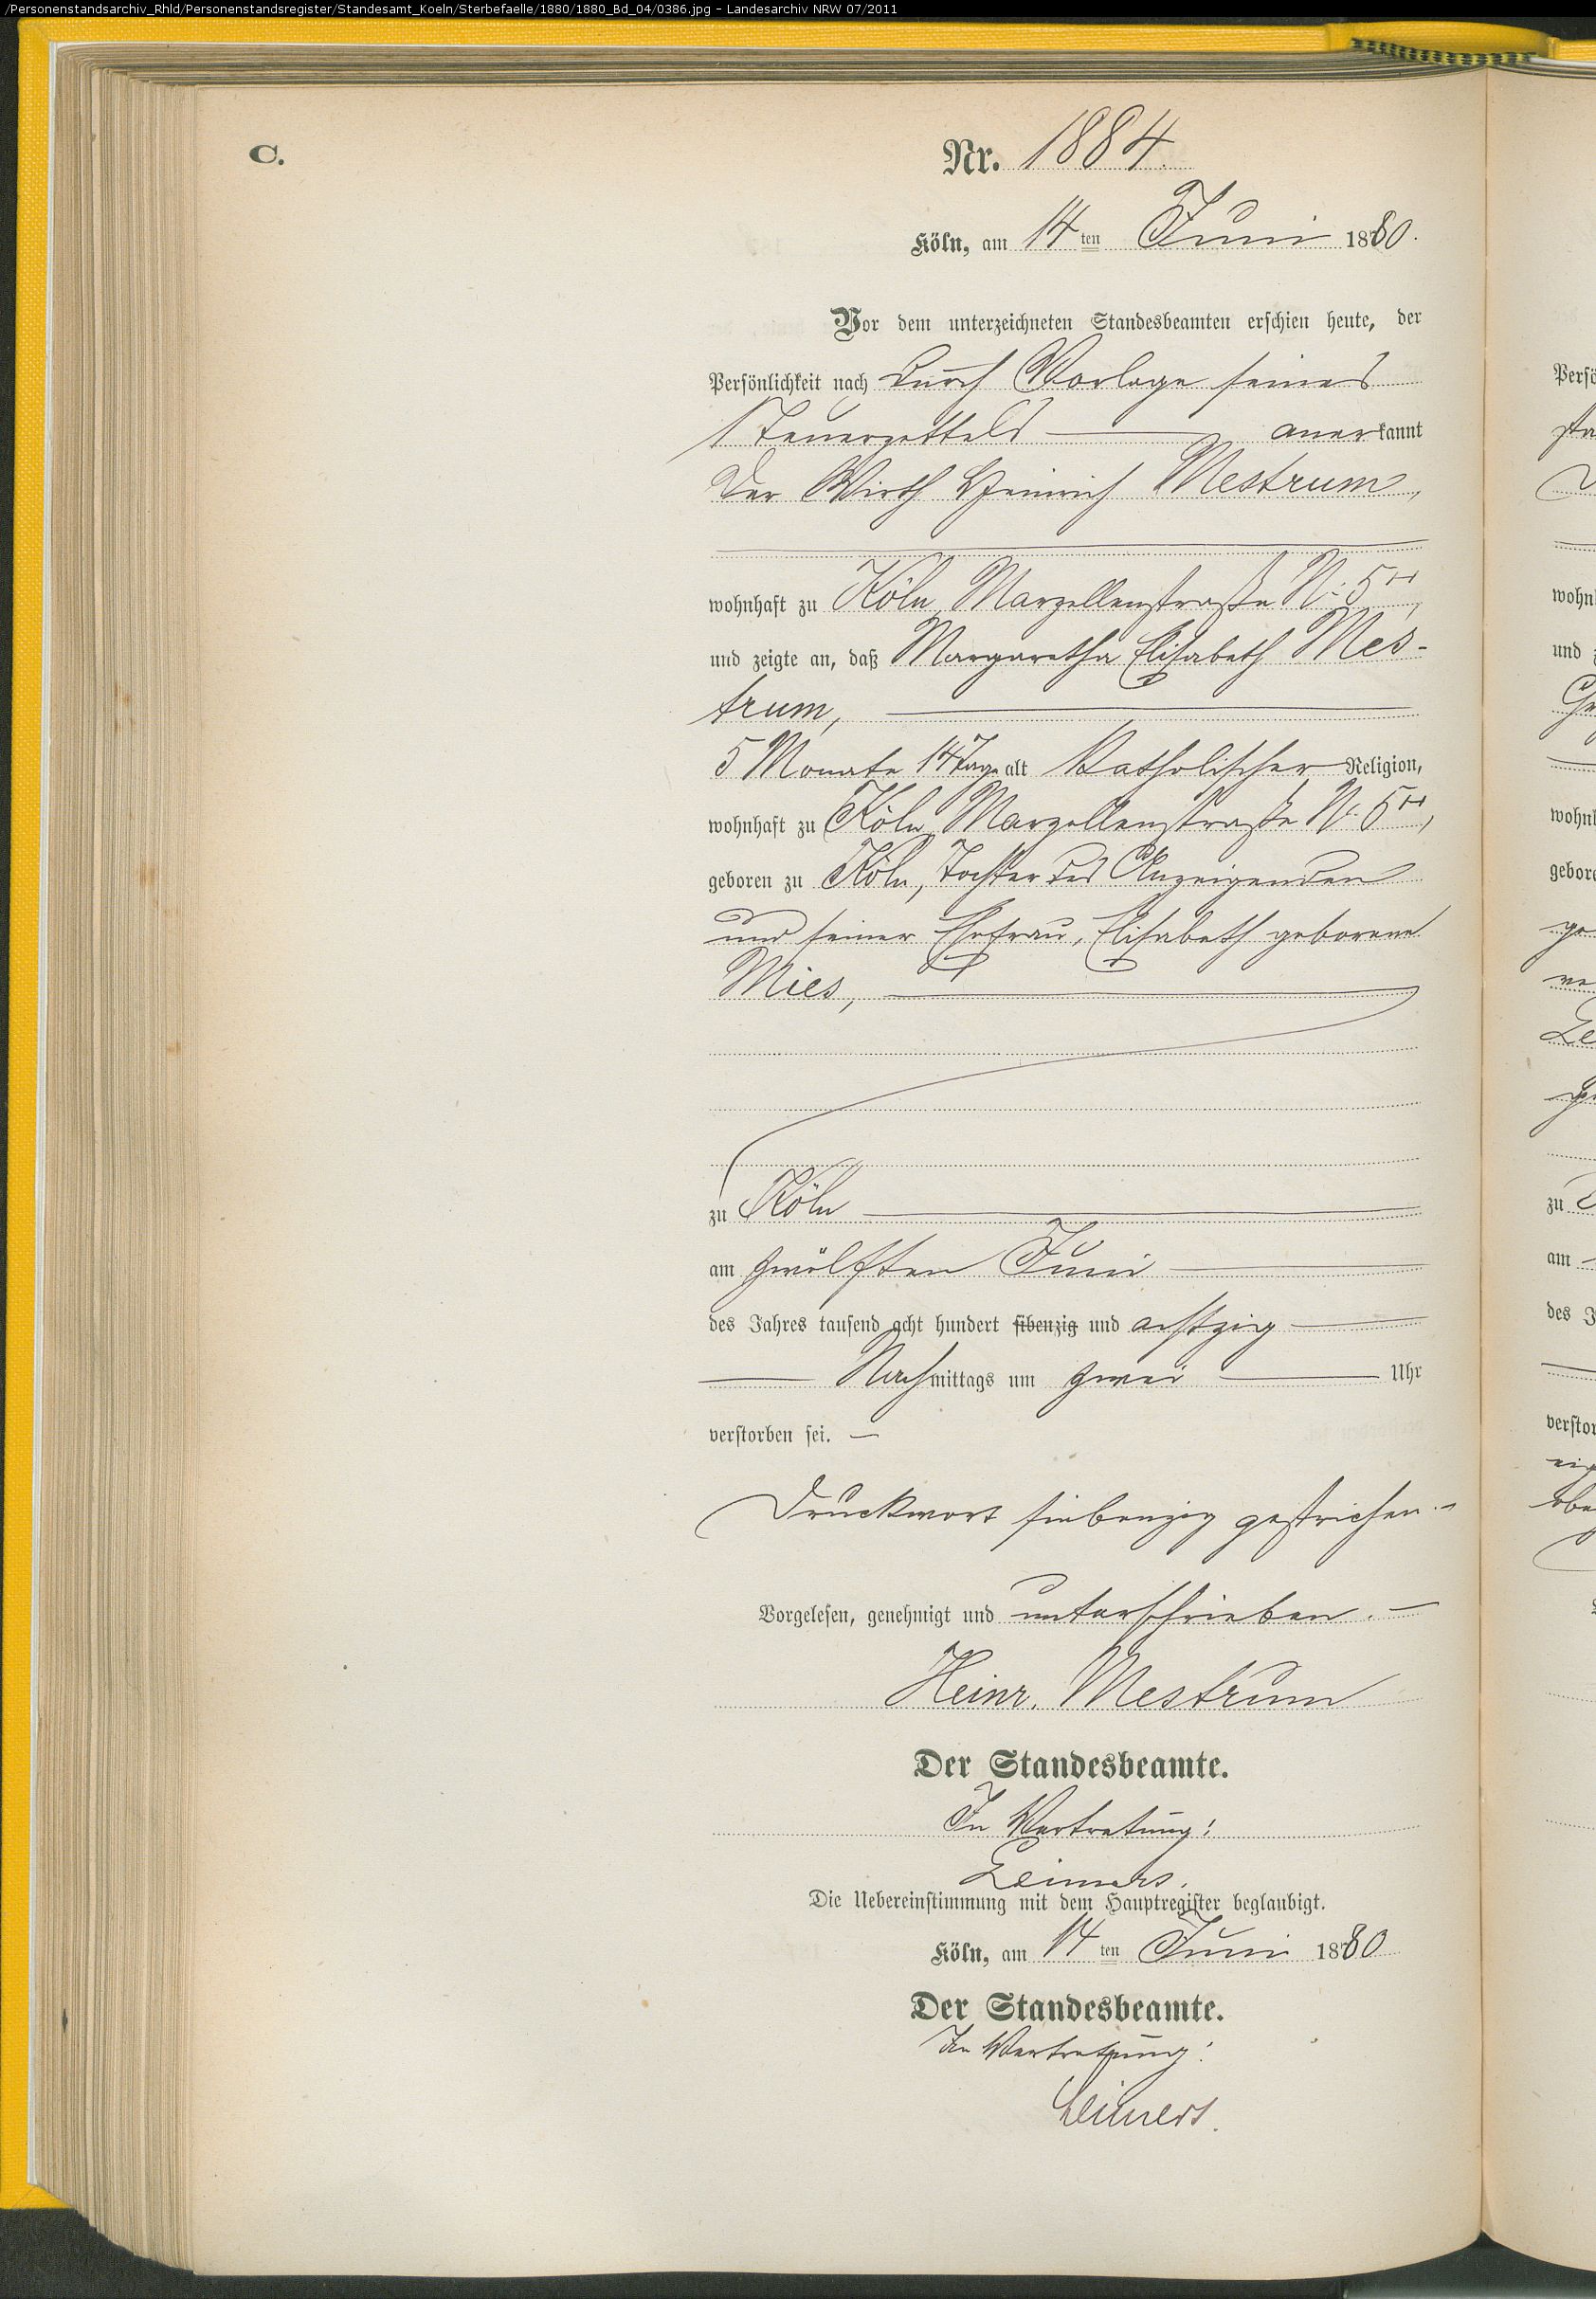 /Personenstandsarchiv_Rhld/Personenstandsregister/Standesamt_Koeln/Sterbefaelle/1880/1880_Bd_04/0386.jpg - Landesarchiv NRW 07/2011
C.
Nr. 1884.
Köln, am 14 ten Juni 1880.
Vor dem unterzeichneten Standesbeamten erschien heute, der
Persönlichkeit nach durch Vorlage seines
Steuerzettels anerkannt
der Wirth Heinrich Mestrum,
wohnhaft zu Köln, Marzellenstraße N: 5
und zeigte an, daß Margaretha Elisabeth Mes-
trum,
5 Monate 14 Tage alt katholischer Religion,
wohnhaft zu Köln, Marzellenstraße N. 5
geboren zu Köln, Tochter des Anzeigenden
und seiner Ehefrau, Elisabeth geborene
Mies,
zu Köln
am zwölften Juni
des Jahres tausend acht hundert siebenzig und achtzig
Nachmittags um zwei Uhr
verstorben sei. —
Druckwort siebenzig gestrichen. –
Vorgelesen, genehmigt und unterschrieben. –
Heinr. Mestrum
Der Standesbeamte.
In Vertretung:
Leimers.
Die Uebereinstimmung mit dem Hauptregister beglaubigt.
Köln, am 14 ten Juni 1880
Der Standesbeamte.
In Vertretung:
Leimers.
wohn
und
zu
am
des J